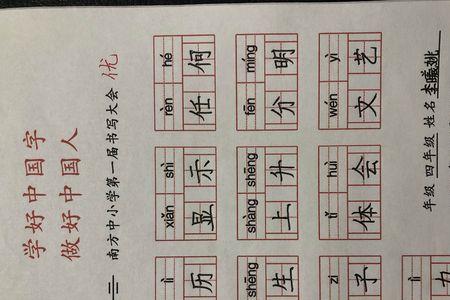 学好中国字
做好中国人
南方中小学第一届书写大会 优
lì xiǎn shì rèn hé
历 显示 任何
shēng shàng shēng fēn míng
生 上升 分明
zi tǐ huì wén yì
子 体会 文艺
年级 四年级 姓名 李